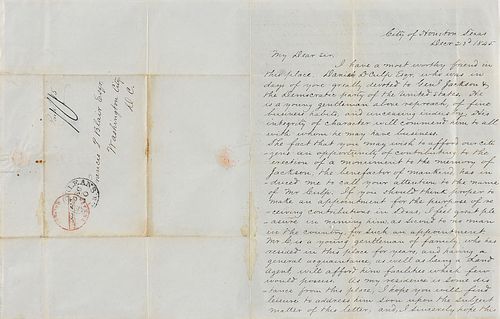 City of Houston Texas
Decr 21st 1845
My Dear Sir.
I have a most worthy friend in
this place. Daniel D Culp Esqr. who was in
days of yore greatly devoted to Genl Jackson &
the Democratic party of the United States. He
is a young gentleman above reproach, of fine
business habits, and unceasing industry. His
integrity of character will commend him to all
with whom he may have business.
The fact that you may wish to afford our citi
zens an opportunity of contributing to the
erection of a monument to the memory of
Jackson, the benefactor of mankind has in-
duced me to call your attention to the name
of Mr Culp. If you should think proper to
make an appointment for the purpose of re-
ceiving contributions in Texas, I feel great ple
asure in naming him, as second to no man
in the country, for such an appointment.
Mr C. is a young gentleman of family, who has
resided in this place for years, and having a
general acquaintance, as well as being a Land
Agent, will afford him facilities which few
would possess. As my residence is some dis-
tance from this place, I hope you will find
leisure to address him soon upon the subject
matter of this letter, and, I sincerely hope the
Francis P Blair Esqr.
Washington City
D.C.
10